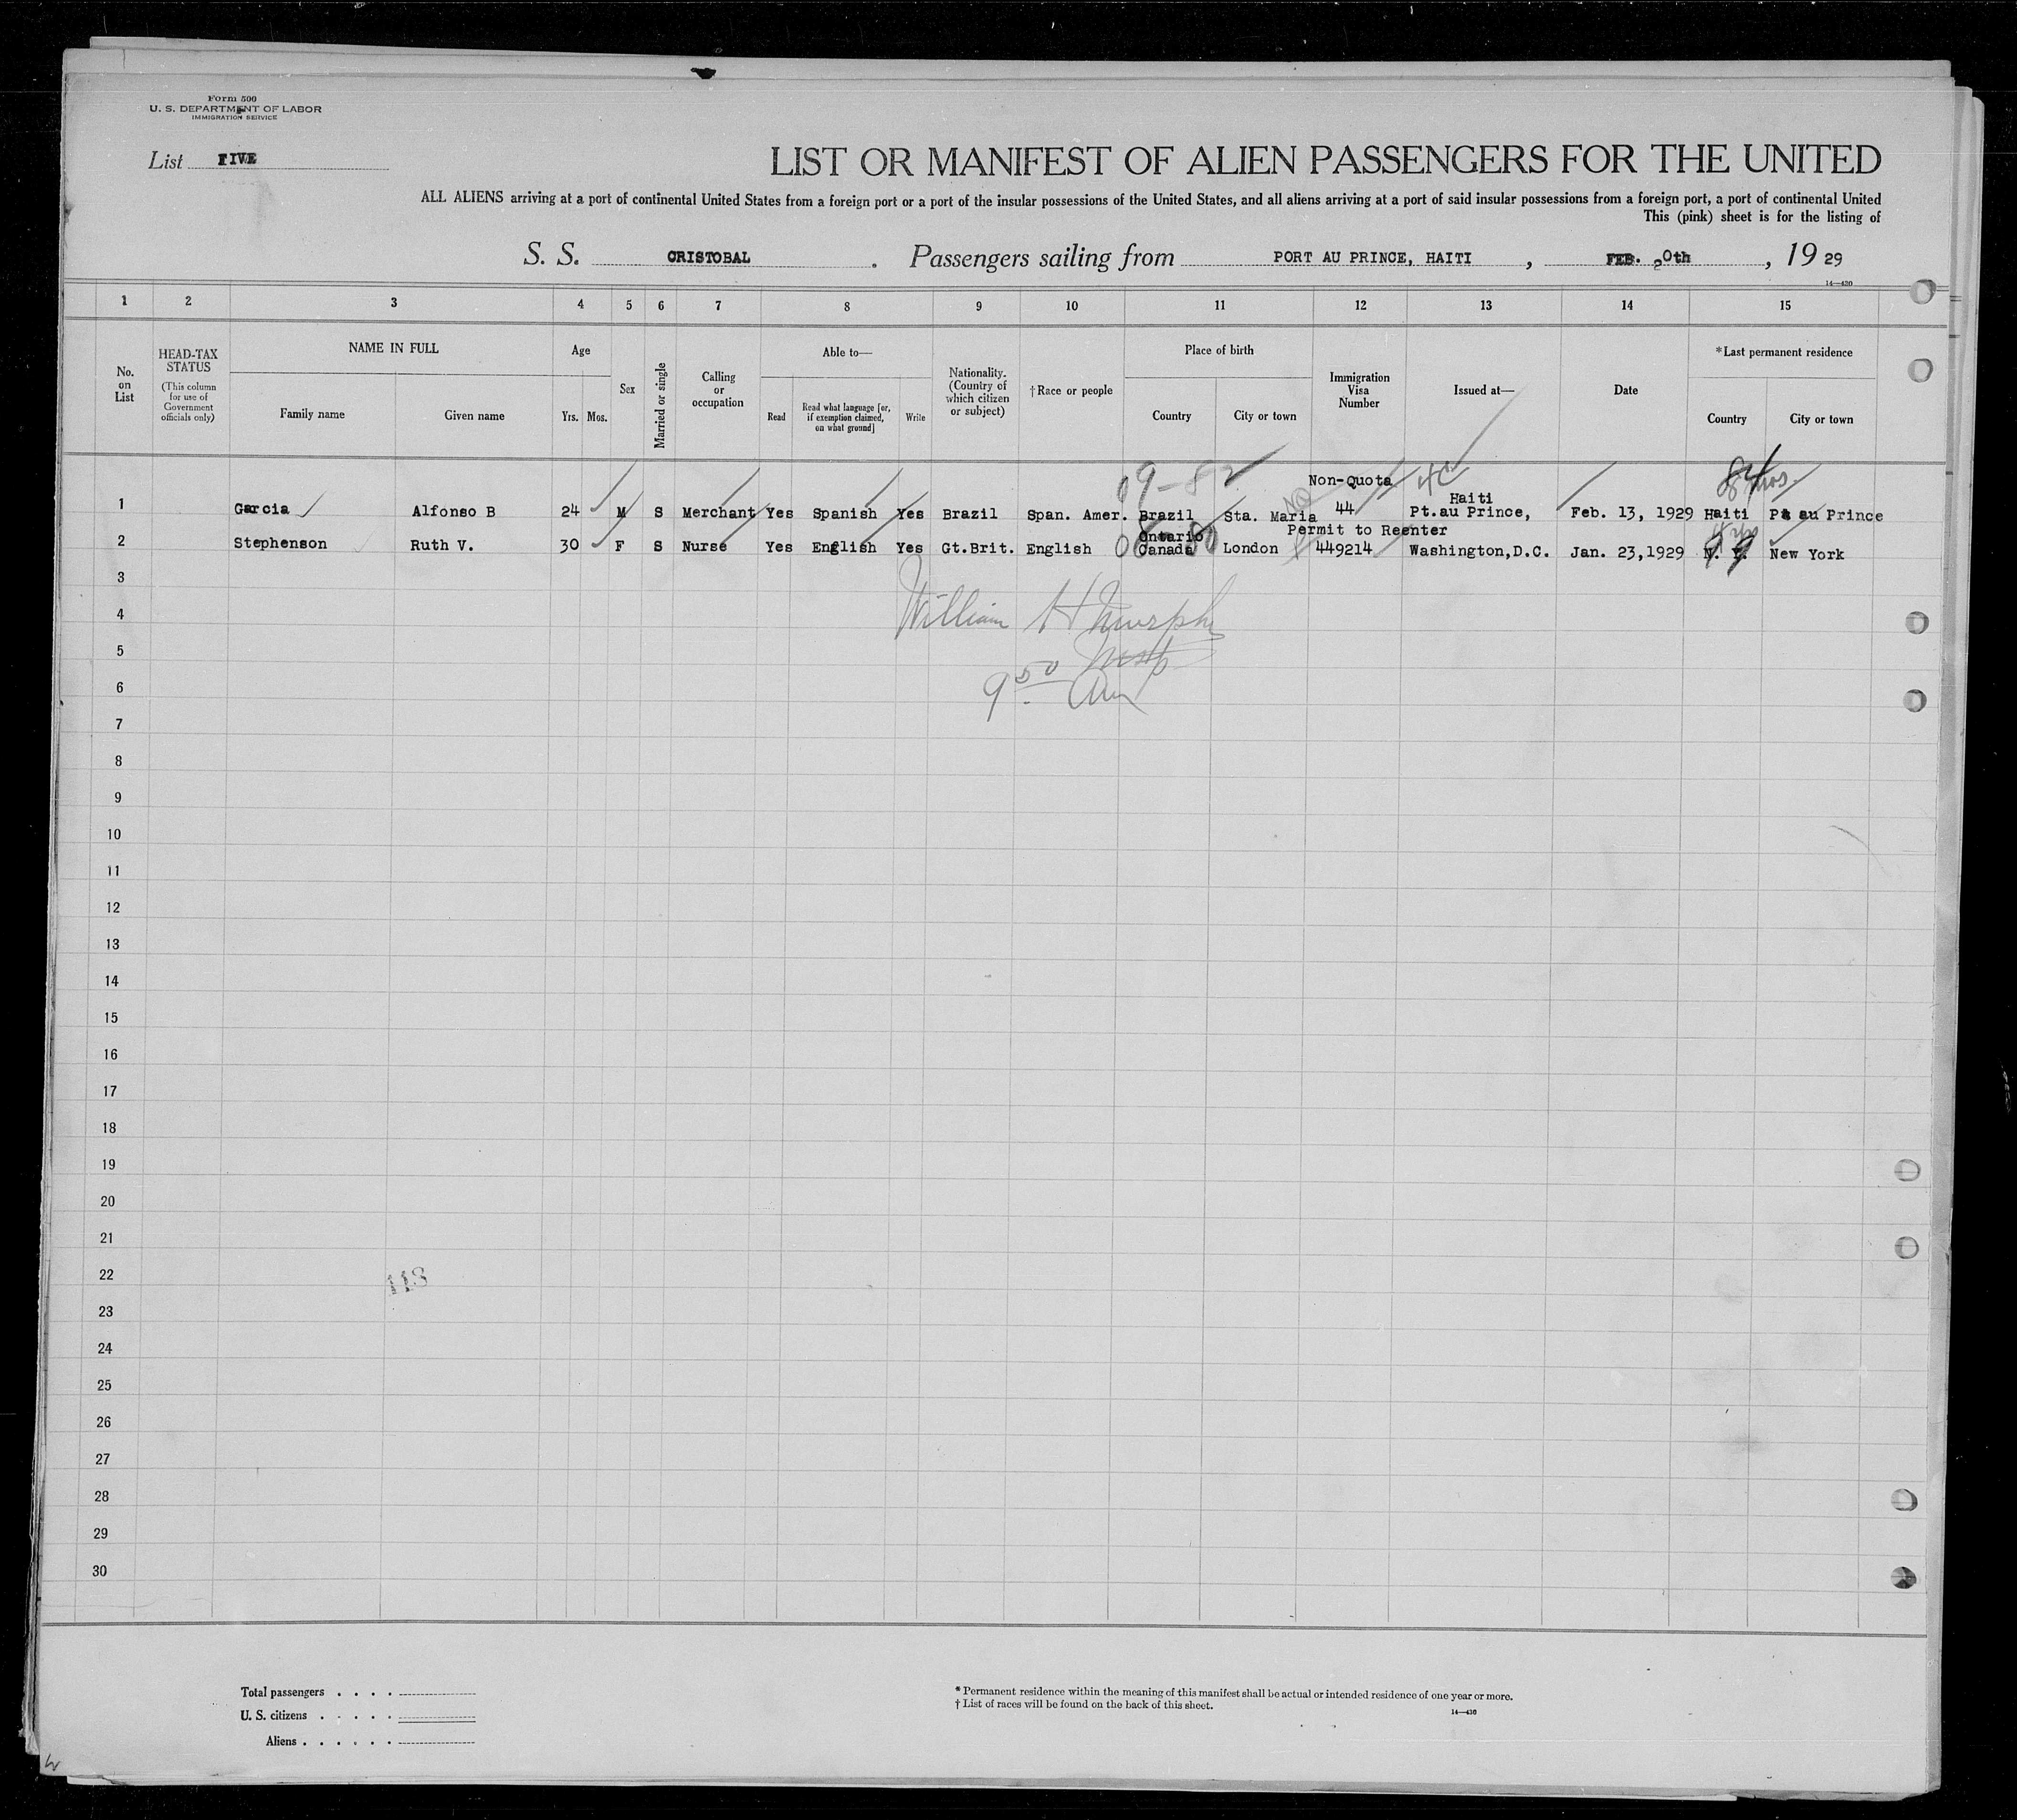 Form 500
U. S. DEPARTMENT OF LABOR
IMMIGRATION SERVICE
List FIVE
LIST OR MANIFEST OF ALIEN PASSENGERS FOR THE UNITED
ALL ALIENS arriving at a port of continental United States from a foreign port or a port of the insular possessions of the United States, and all aliens arriving at a port of said insular possessions from a foreign port, a port of continental United
This (pink) sheet is for the listing of
S. S. CRISTOBAL. Passengers sailing from PORT AU PRINCE, HAITI, FEB. 20th, 19 29
14—430
1 2 3 4 5 6 7 8 9 10 11 12 13 14 15
No. on List
HEAD-TAX STATUS
(This column for use of Government officials only)
NAME IN FULL
Family name Given name
Age
Yrs. Mos.
Sex
Married or single
Calling or occupation
Able to—
Read
Read what language [or, if exemption claimed, on what ground]
Write
Nationality. (Country of which citizen or subject)
†Race or people
Place of birth
Country City or town
Immigration Visa Number
Issued at—
Date
*Last permanent residence
Country City or town
09-82
Non-Quota
Haiti
1 Garcia Alfonso B 24 M S Merchant Yes Spanish Yes Brazil Span. Amer. Brazil Sta. Maria 44 Pt.au Prince, Feb. 13, 1929 Haiti Pt au Prince
Ontario Permit to Reenter
2 Stephenson Ruth V. 30 F S Nurse Yes English Yes Gt.Brit. English Canada London 449214 Washington,D.C. Jan. 23,1929 N. Y. New York
3
William H Murphy
4
5
9 50 am
6
7
8
9
10
11
12
13
14
15
16
17
18
19
20
21
22
113
23
24
25
26
27
28
29
30
Total passengers . . . .
U. S. citizens . . . . .
Aliens . . . . . .
* Permanent residence within the meaning of this manifest shall be actual or intended residence of one year or more.
† List of races will be found on the back of this sheet.
14—430